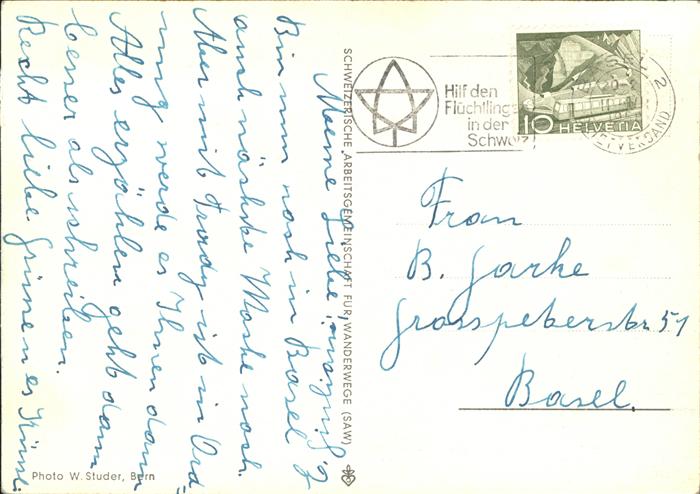 Meine Liebe!
Bin nun noch in Basel
auch nächste Woche noch.
Aber mit Trudy ist in Ord
nung werde es Ihnen dann
Alles erzählen geht dann
besser als schreiben.
Recht liebe Grüssen es
SCHWEIZERISCHE ARBEITSGEMEINSCHAFT FÜR WANDERWEGE (SAW)
Photo W. Studer, Bern
Hilf den
Flüchtlingen
in der
Schweiz!
10 HELVETIA
2
BRIEFVERSAND
Frau
B. Jarke
Grosspeterstr 51
Basel.